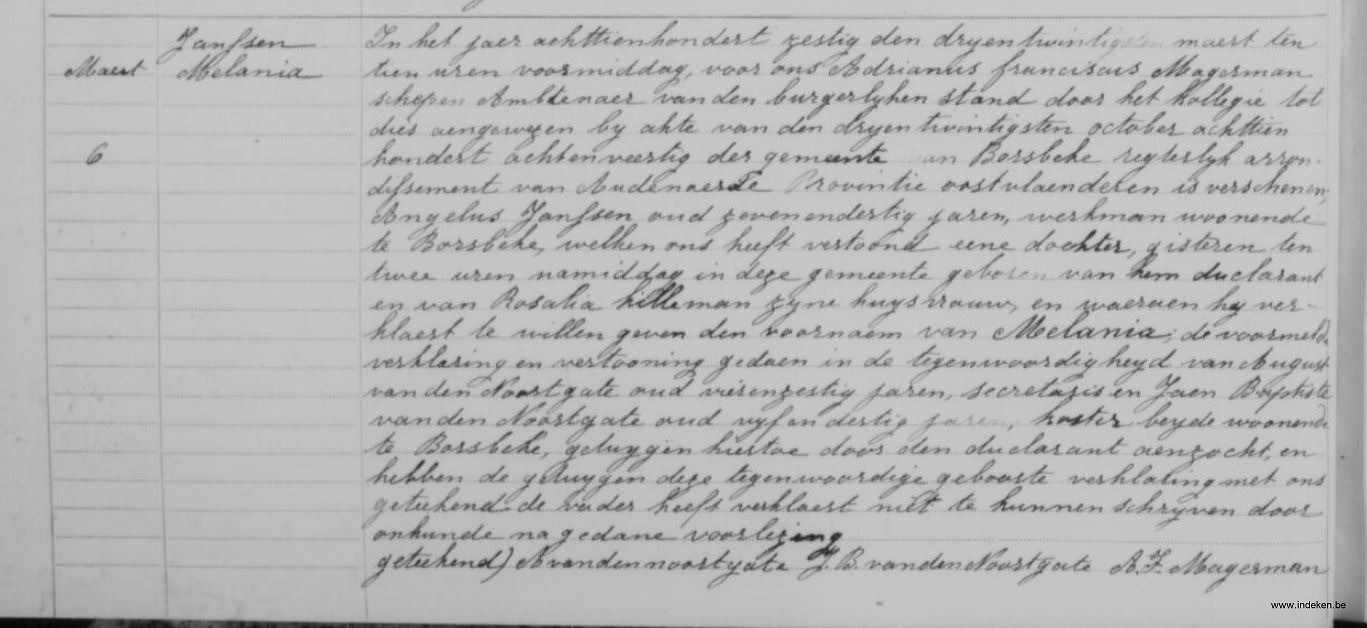 Maert
6
Janssen
Melania
In het jaer achttienhondert zestig den dryentwintigsten maert ten
tien uren voormiddag, voor ons Adrianus franciscus Magerman
schepen Ambtenaer van den burgerlyken stand door het kollegie tot
dies aengewezen by akte van den dryentwintigsten october achttien
hondert achtenveertig der gemeente van Borsbeke regterlyk arron-
dissement van Audenaerde Provintie oostvlaenderen is verschenen,
Angelus Janssen oud zevenendertig jaren, werkman woonende
te Borsbeke, welken ons heeft vertoond eene dochter, gisteren ten
twee uren namiddag in deze gemeente geboren van hem duclarant
en van Rosalia hilleman zyne huysvrouw, en waeraen hy ver-
klaert te willen geven den voornaem van Melania; de voormelde
verklaring en vertooning gedaen in de tegenwoordigheyd van August
van den Noortgate oud vierenzestig jaren, secretaris en Jaen Baptiste
van den Noortgate oud vyfendertig jaren, koster beyde woonende
te Borsbeke, getuygen hiertoe door den duclarant aenzocht, en
hebben de getuygen deze tegenwoordige geboorte verklaring met ons
geteekend de vader heeft verklaert niet te kunnen schryven door
onkunde na gedane voorlezing
geteekend) A vandennoortgate J. B. vandenNoortgate A. F. Magerman
www.indeken.be